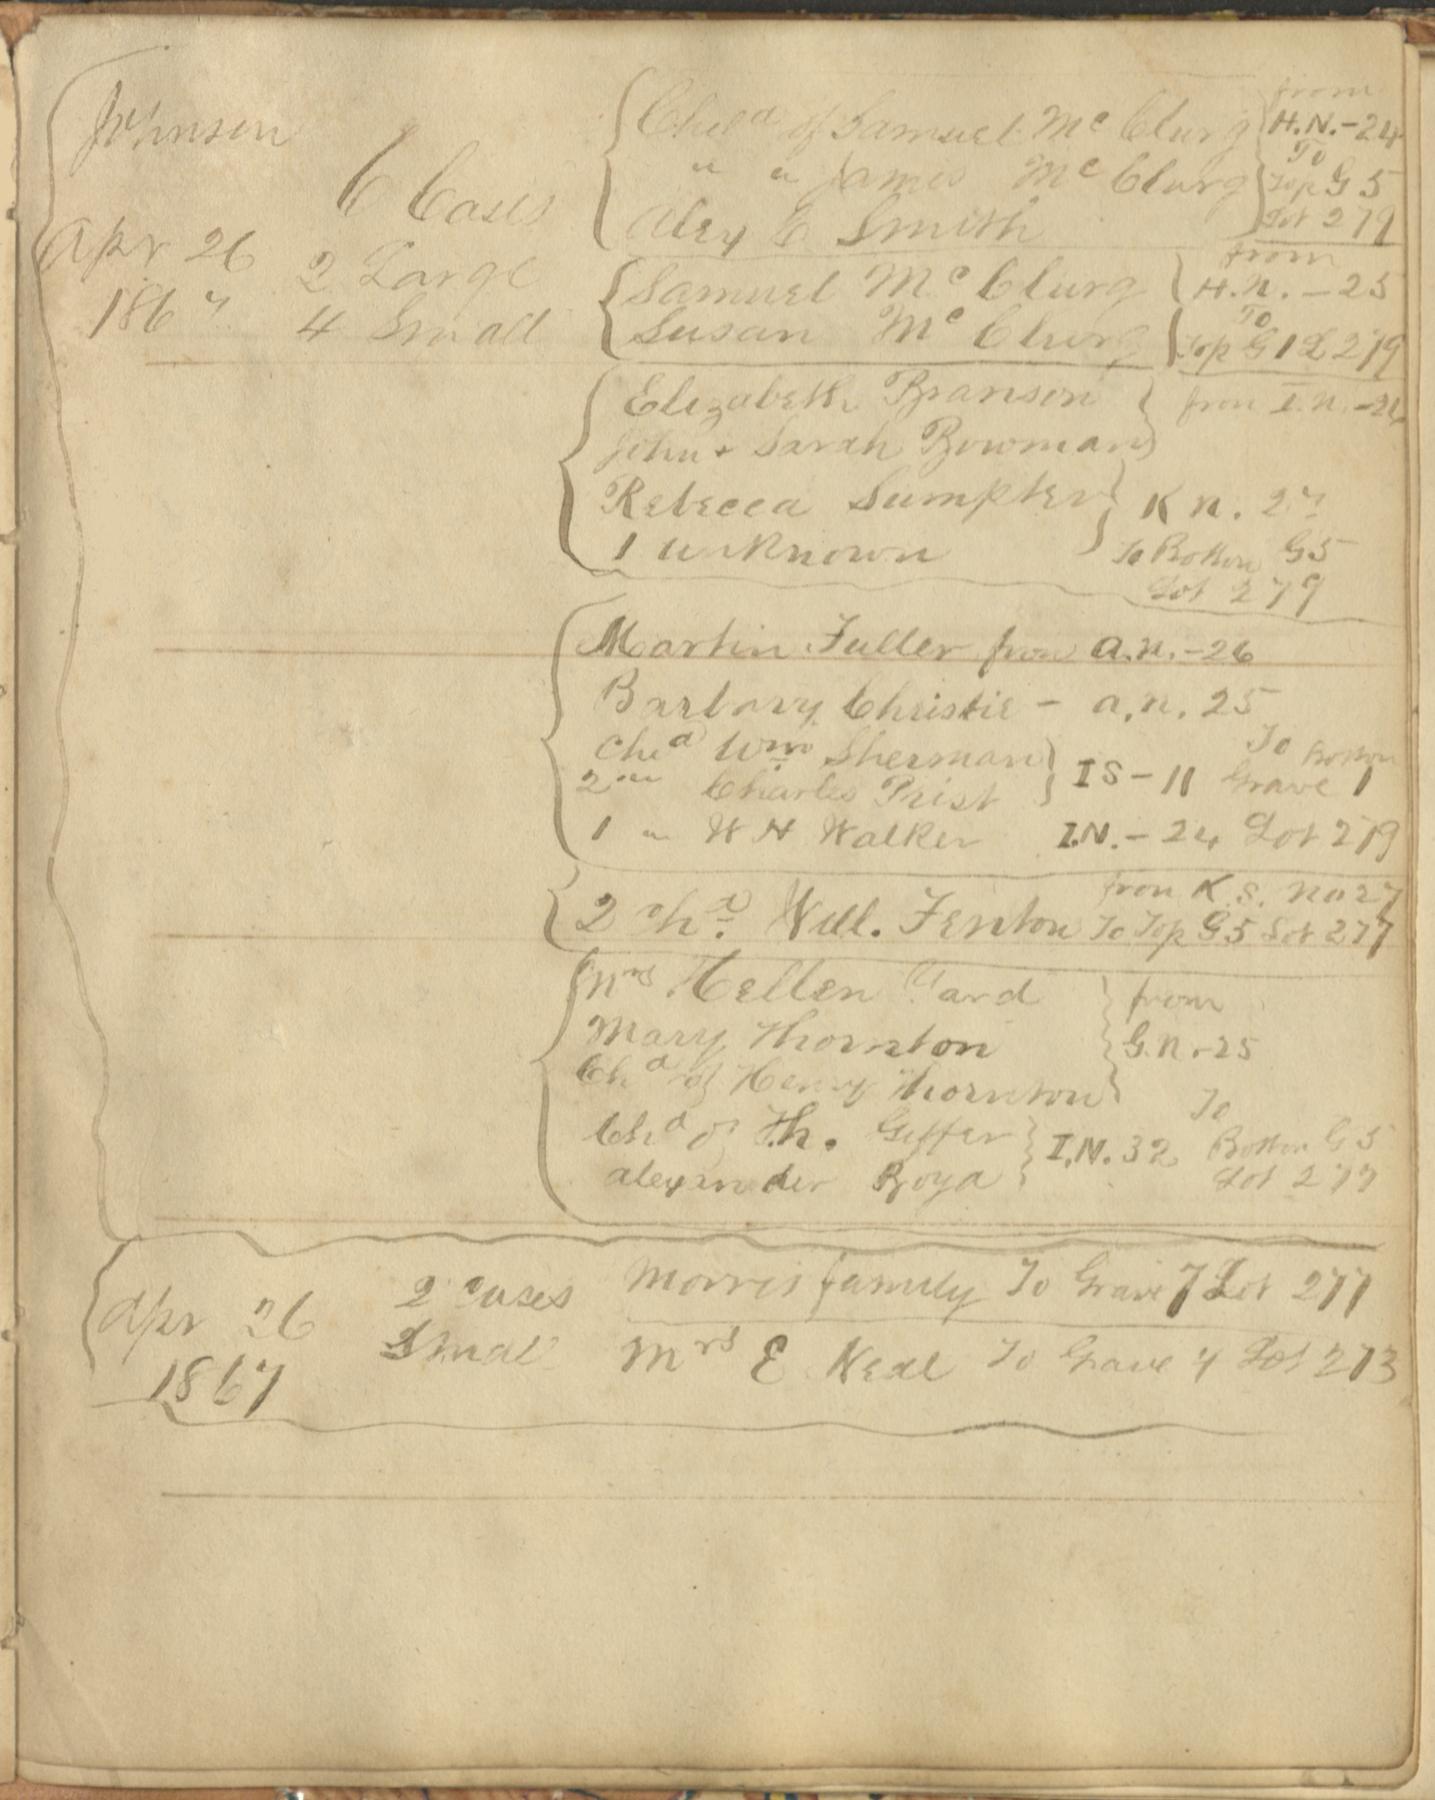 Johnson
6 Cases
Apr 26 2 Large
1867 4 Small
Child of Samuel McClurg
" " James McClurg
Alex E Smith
from
H.N.-24
To
Top G 5
Lot 279
Samuel McClurg
Susan McClurg
from
H.N.-25
To
Top G 1 L 279
Elizabeth Branson
John + Sarah Bowman
from I.N.-24
Rebecca Sumpter
1 unknown
K N. 27
To Bottom G5
Lot 279
Martin Fuller from A.N.-26
Barbary Christie - A.N. 25
Chd Wm Sherman
2 " Charles Prist
IS-11
To Bottom
Grave 1
1 " W H Walker I.N.-24 Lot 279
2 chd Will. Fenton
from K.S. No 27
To Top G5 Lot 277
Mrs Hellen Ward
Mary Thornton
Chd of Henry Thornton
from
G.N.-25
Chd of Th.
Alexander
I.N. 32
To
Bottom G 5
Lot 277
Apr 26 2 cases
1867 Small
Morris family To Grave 7 Lot 277
Mrs E Neal To Grave 4 Lot 273